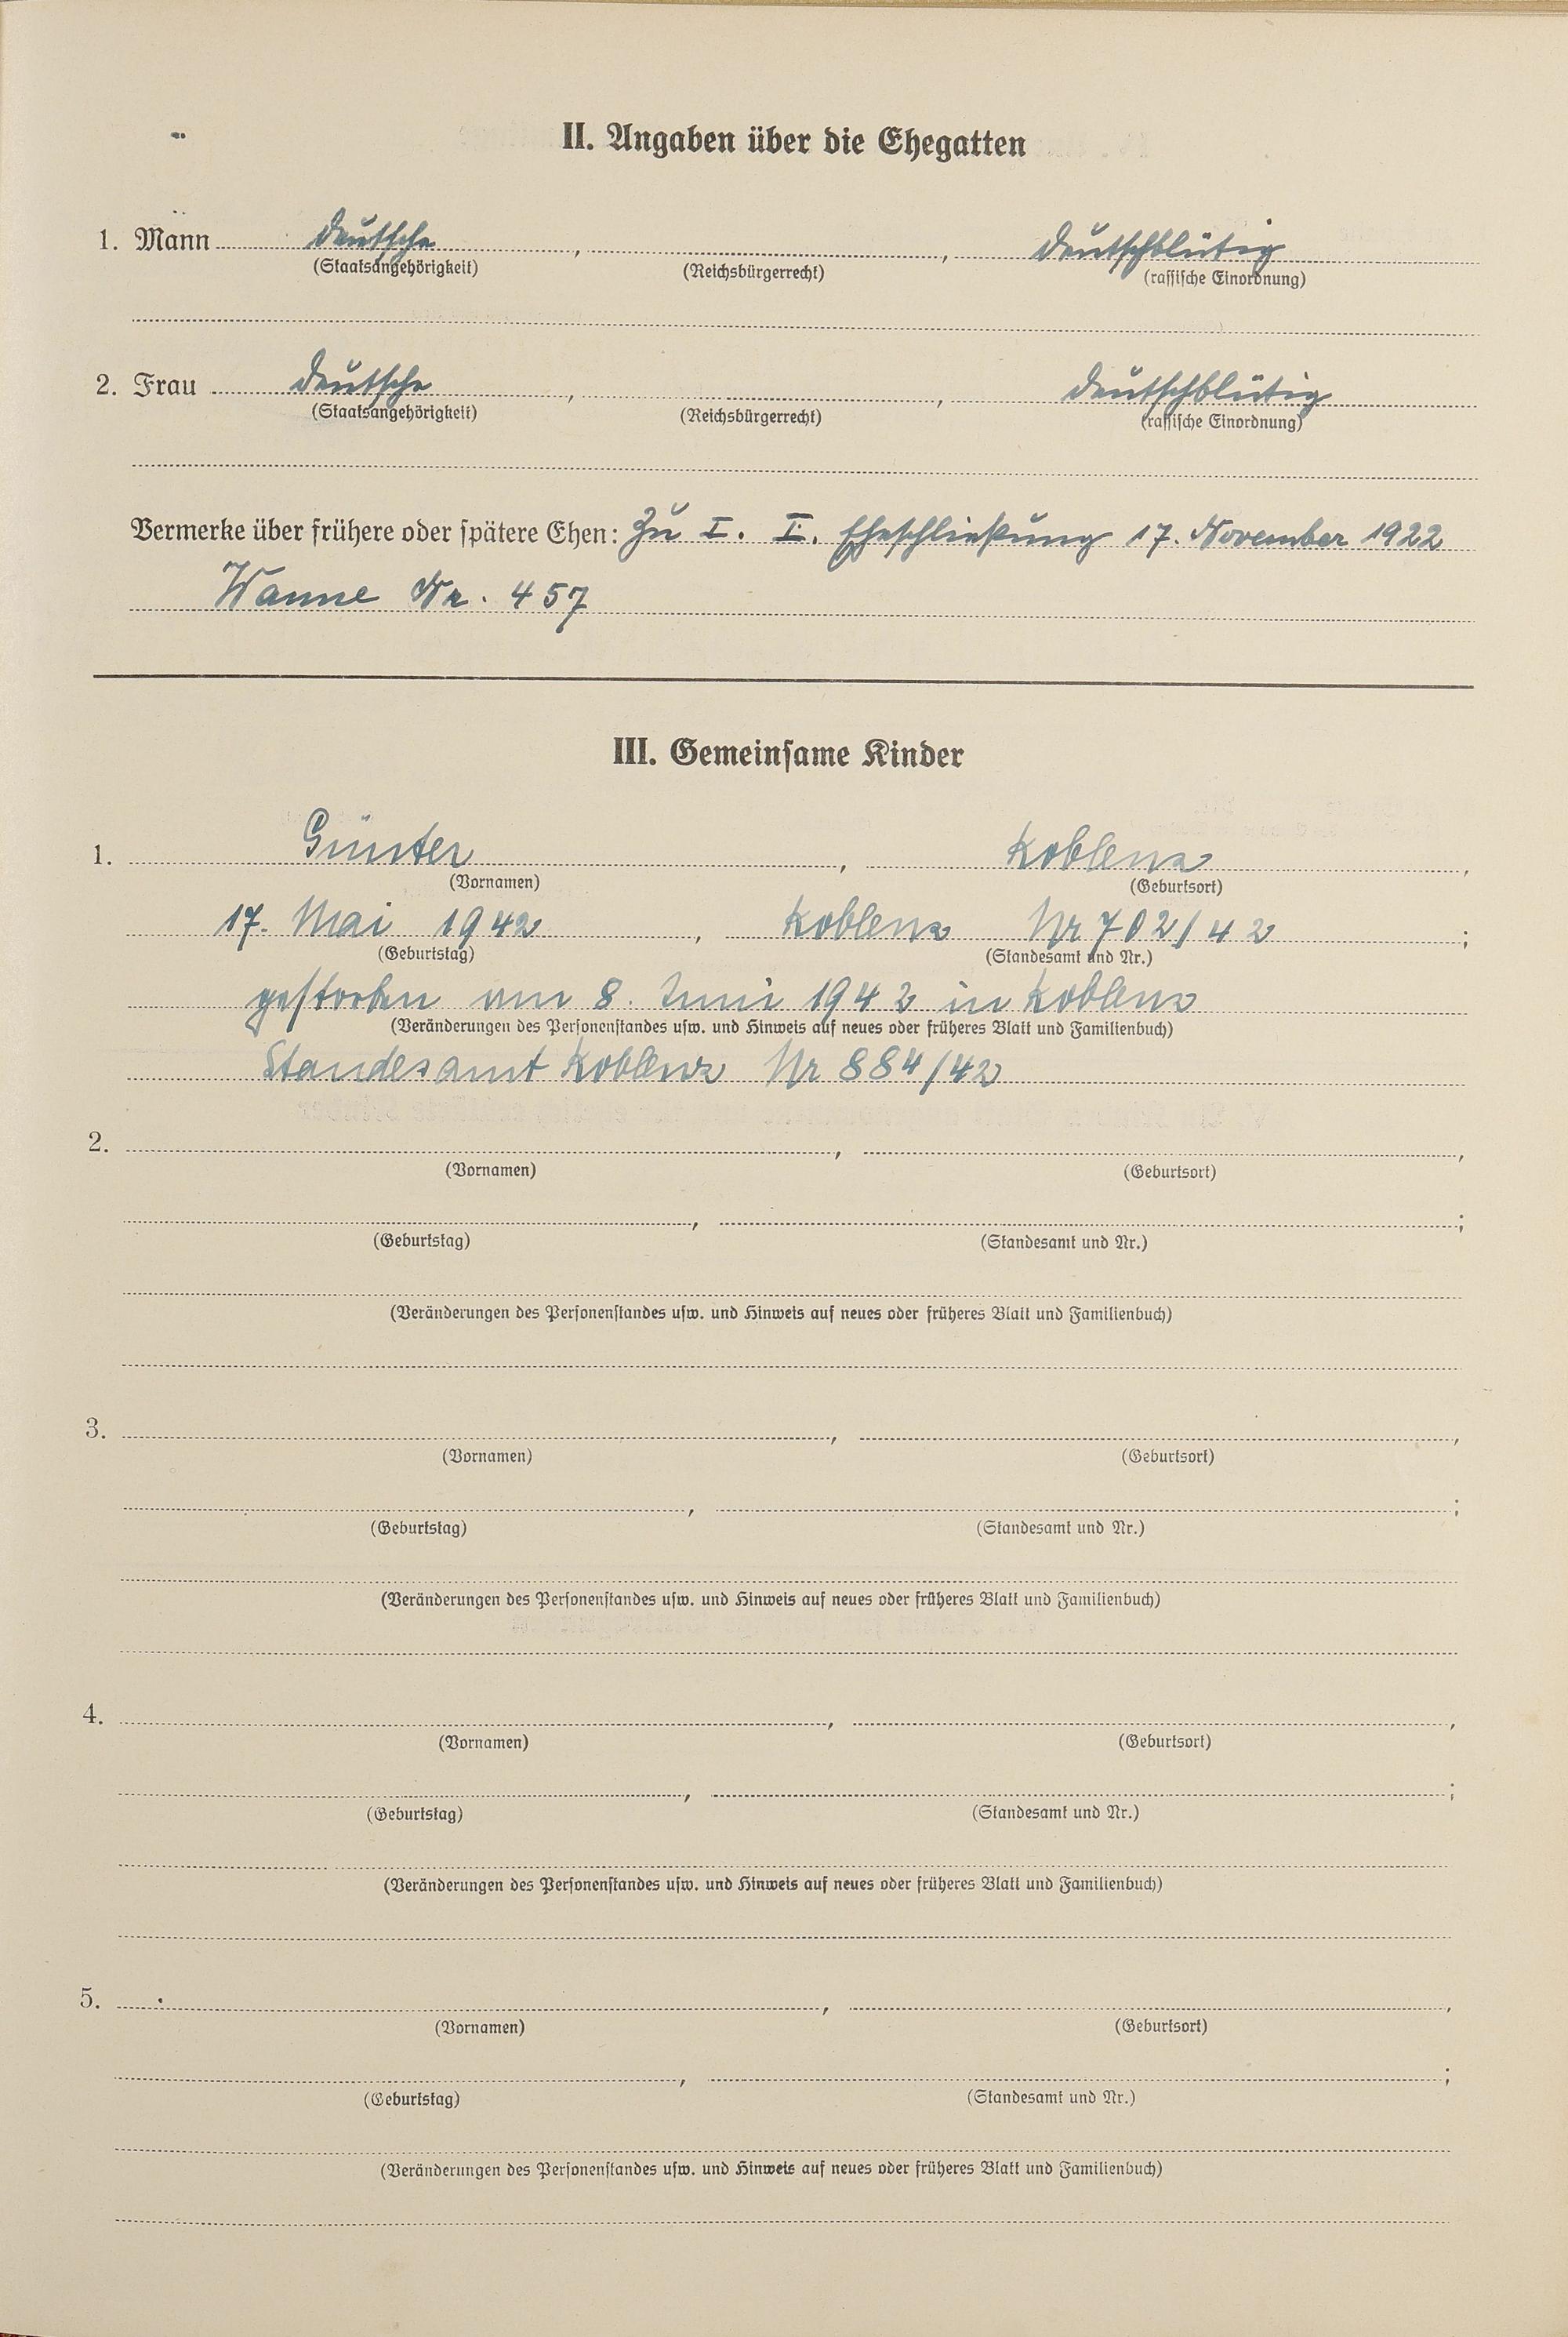 II. Angaben über die Ehegatten
1. Mann deutsche , , deutschblütig
(Staatsangehörigkeit) (Reichsbürgerrecht) (rassische Einordnung)
2. Frau deutsche , , deutschblütig
(Staatsangehörigkeit) (Reichsbürgerrecht) (rassische Einordnung)
Vermerke über frühere oder spätere Ehen: Zu I. I. Eheschließung 17. November 1922
Wanne Nr. 457
III. Gemeinsame Kinder
1. Günter , Koblenz ,
(Vornamen) (Geburtsort)
17. Mai 1942 , Koblenz Nr 702/42 ;
(Geburtstag) (Standesamt und Nr.)
gestorben am 8. Juni 1942 in Koblenz
(Veränderungen des Personenstandes usw. und Hinweis auf neues oder früheres Blatt und Familienbuch)
Standesamt Koblenz Nr 884/42
2. , ,
(Vornamen) (Geburtsort)
, ;
(Geburtstag) (Standesamt und Nr.)
(Veränderungen des Personenstandes usw. und Hinweis auf neues oder früheres Blatt und Familienbuch)
3. , ,
(Vornamen) (Geburtsort)
, ;
(Geburtstag) (Standesamt und Nr.)
(Veränderungen des Personenstandes usw. und Hinweis auf neues oder früheres Blatt und Familienbuch)
4. , ,
(Vornamen) (Geburtsort)
, ;
(Geburtstag) (Standesamt und Nr.)
(Veränderungen des Personenstandes usw. und Hinweis auf neues oder früheres Blatt und Familienbuch)
5. , ,
(Vornamen) (Geburtsort)
, ;
(Geburtstag) (Standesamt und Nr.)
(Veränderungen des Personenstandes usw. und Hinweis auf neues oder früheres Blatt und Familienbuch)